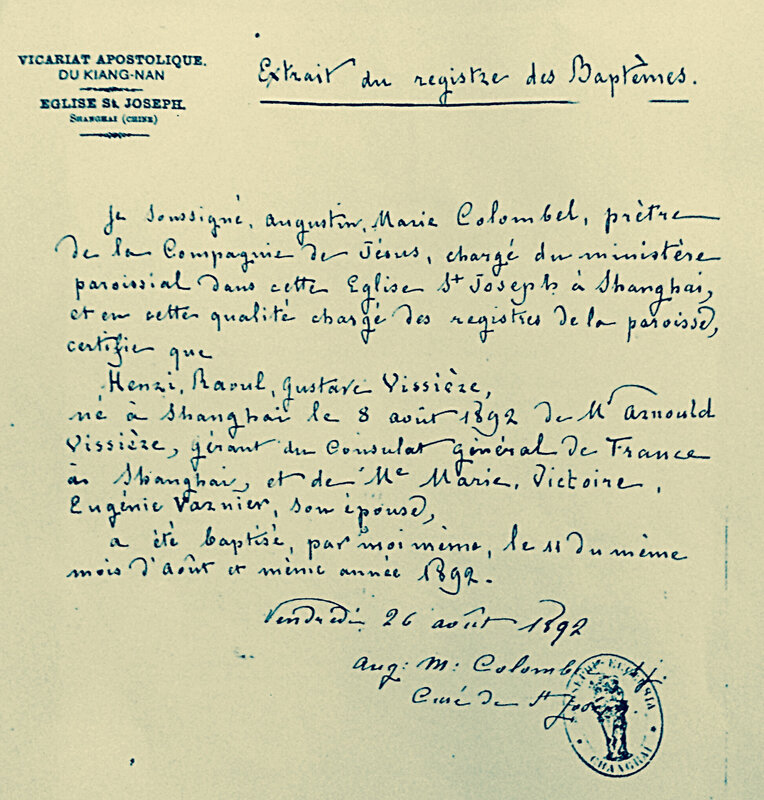 VICARIAT APOSTOLIQUE.
DU KIANG-NAN
EGLISE St. JOSEPH.
SHANGHAI (CHINE)
Extrait du registre des Baptêmes.
Je soussigné, Augustin, Marie Colombel, prêtre
de la Compagnie de Jésus, chargé du ministère
paroissial dans cette Eglise St Joseph à Shanghai,
et en cette qualité chargé des registres de la paroisse,
certifie que
Henri, Raoul, Gustave Vissière,
né à Shanghai le 8 août 1892 de Mr Arnould
Vissière, gérant du Consulat général de France
à Shanghai, et de Me Marie, Victoire,
Eugénie Varnier, son épouse,
a été baptisé, par moi même, le 11 du même
mois d'Août et même année 1892.
Vendredi 26 août 1892
Aug: M: Colombel S.J.
Curé de St Joseph
CHANGHAI